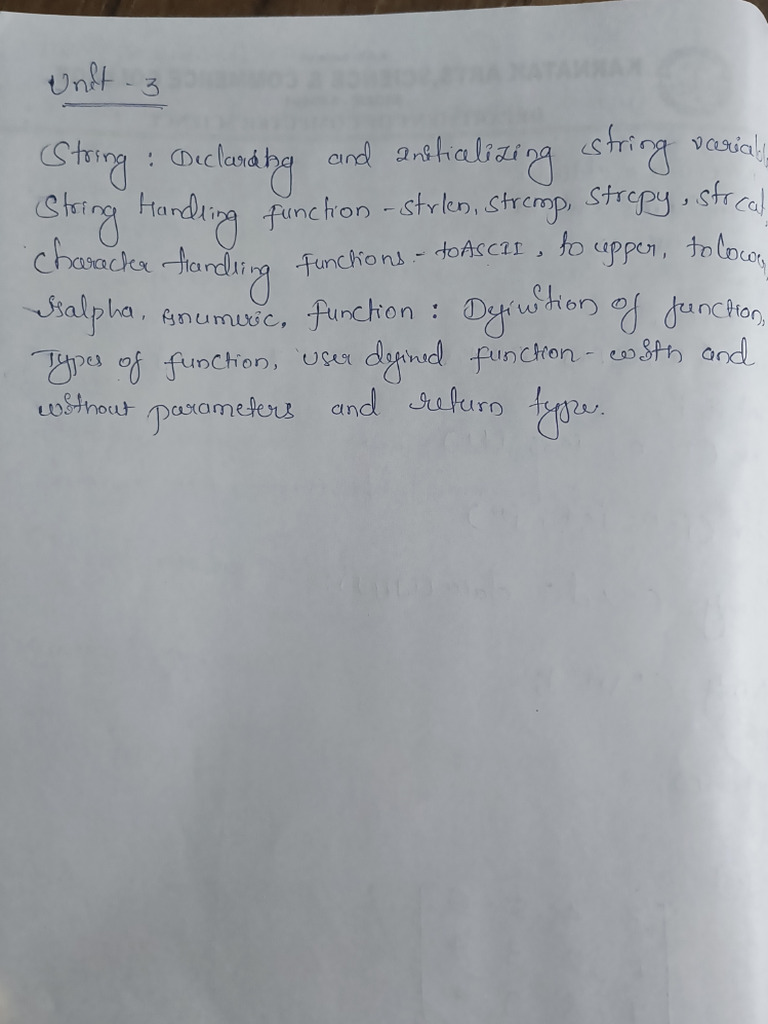 Unit - 3
String : Declarating and Initializing string variabl
String Handling function - strlen, strcmp, strcpy, strcat,
Character Handling functions - toASCII, to upper, tolower,
Isalpha, Isnumeric, function : Definition of function,
Types of function, user defined function - with and
without parameters and return type.
KARNATAK ARTS, SCIENCE & COMMERCE